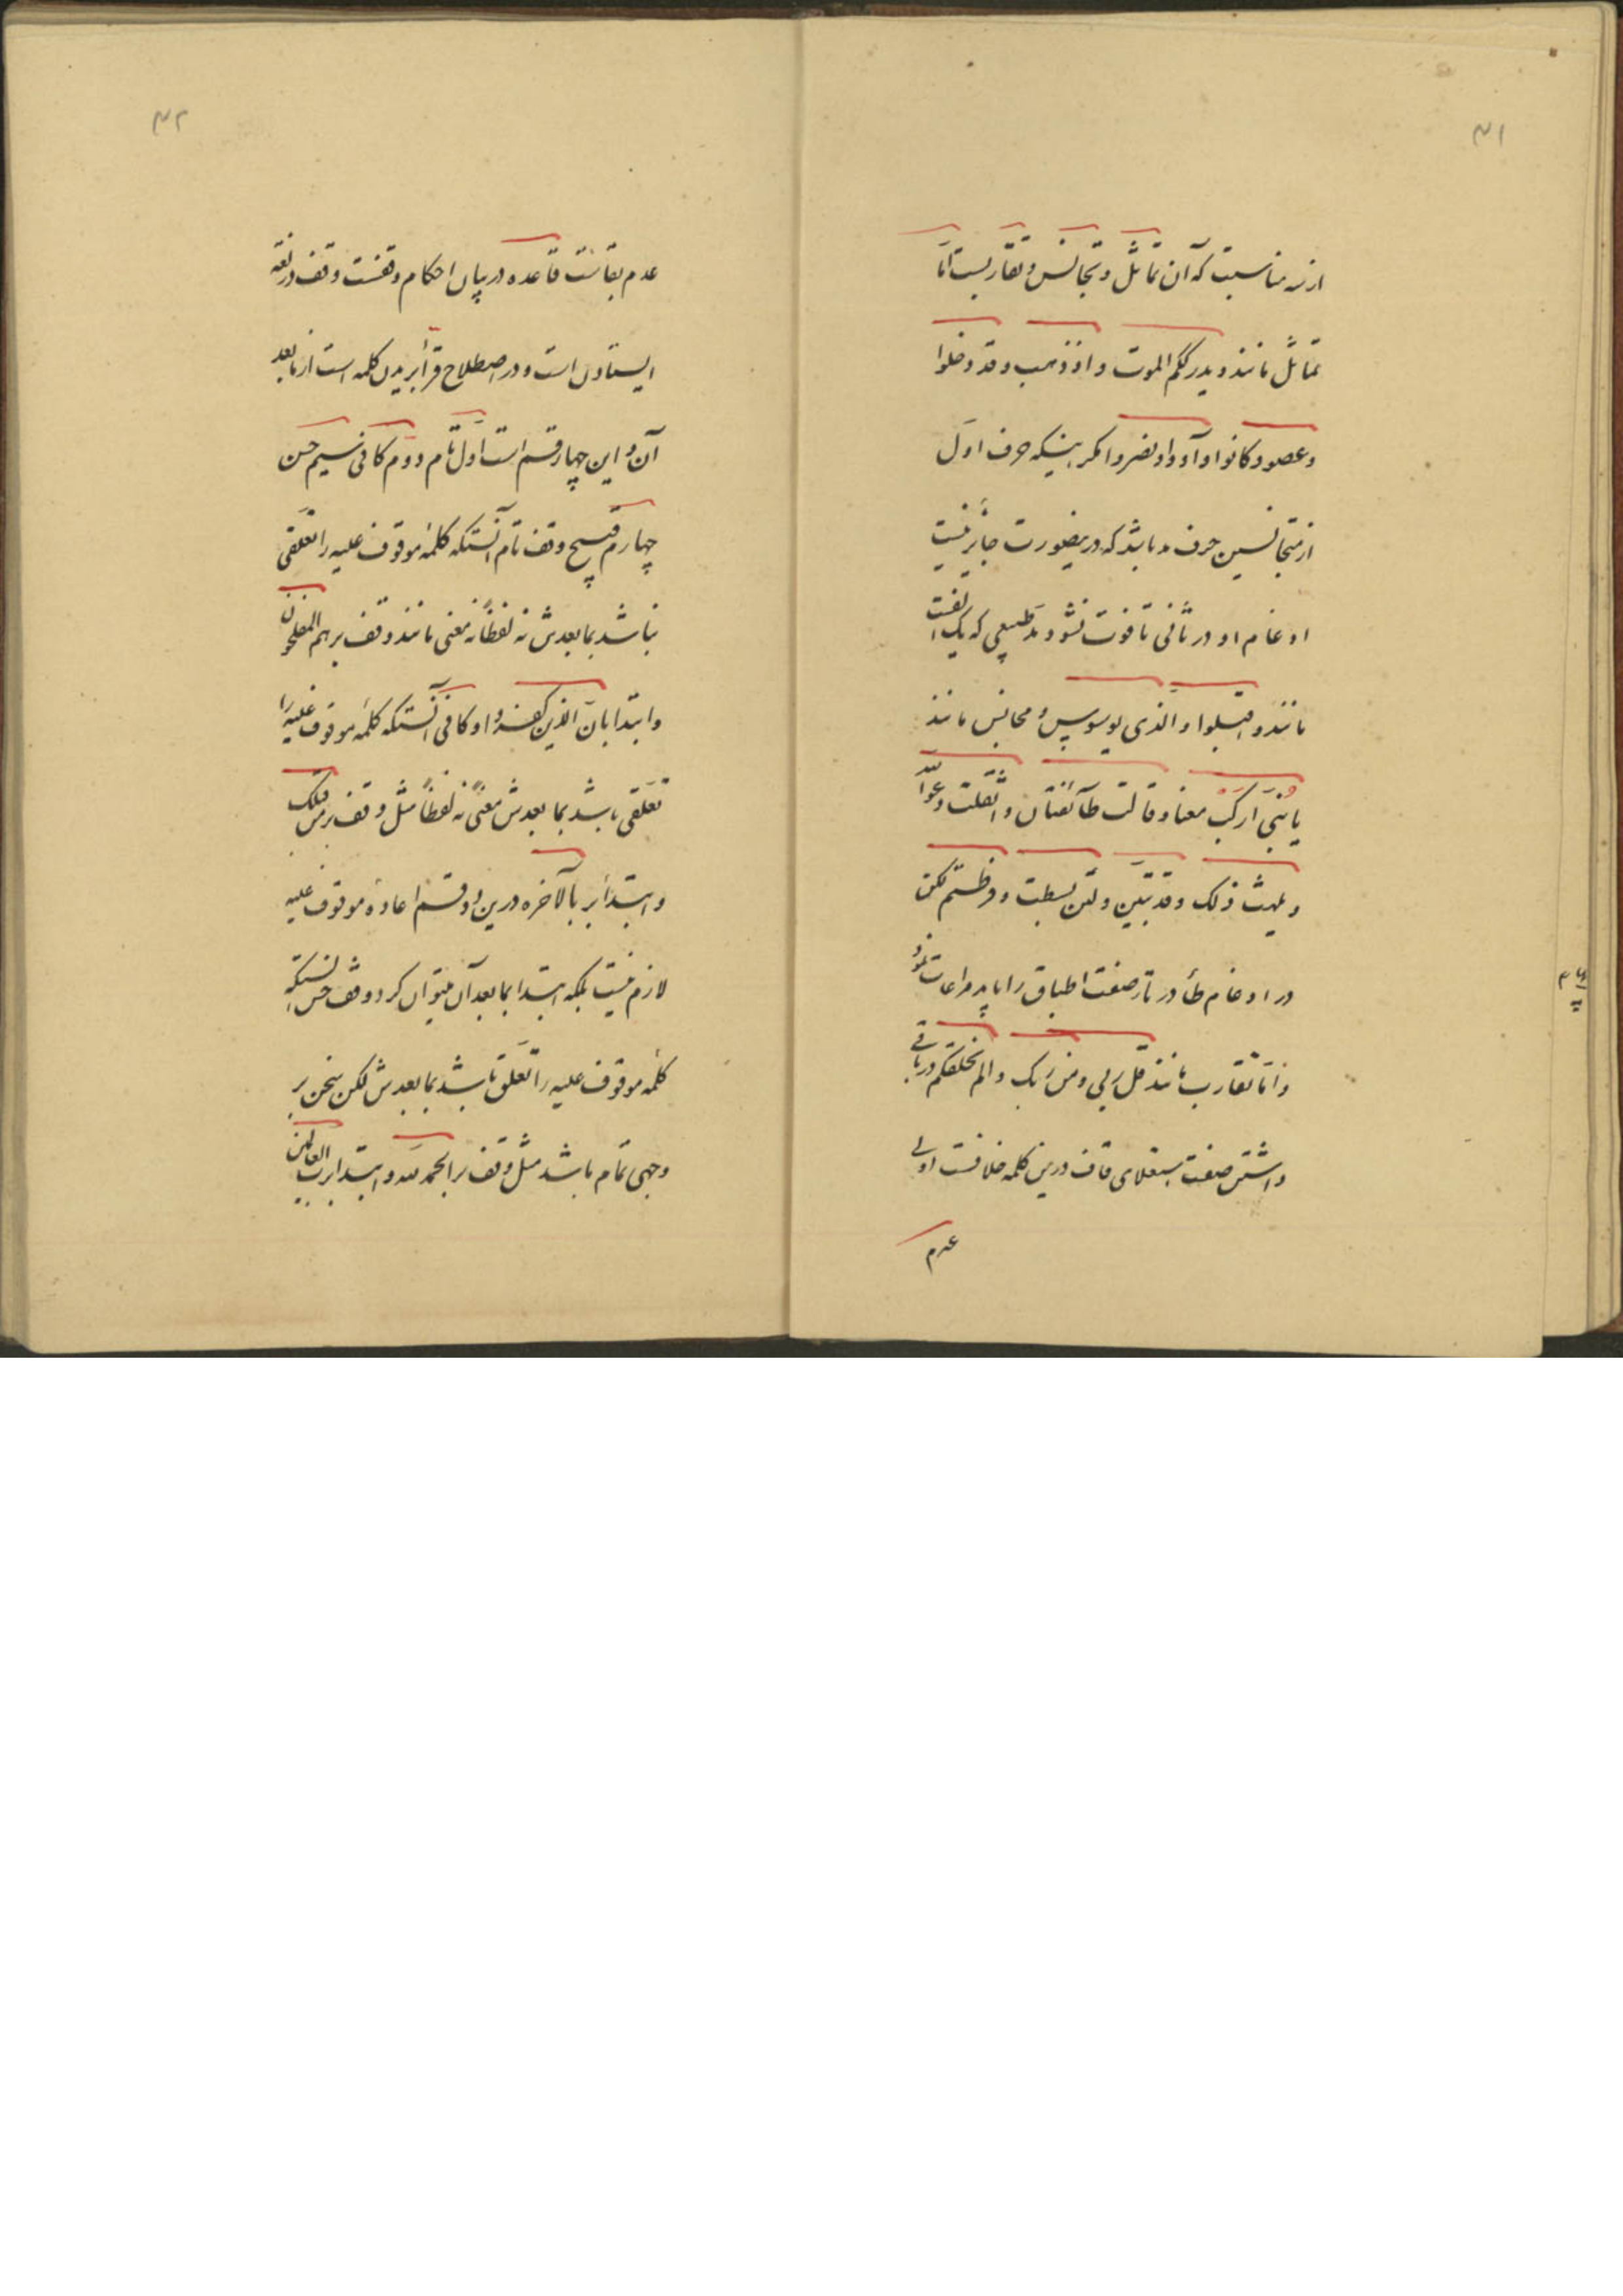 ۴۱
از سه مناسبت که آن تماثل و تجانس و تقاربست امّا
تماثل مانند و یدرککم الموت و اذ ذهب و قد دخلوا
و عصوا و کانوا و آووا و نصروا مکر اینکه حرف اول
از متجانسین حرف مد باشد که درینصورت جایز نیست
ادغام او در ثانی تا فوت نشود مد طبیعی که یک الفست
مانند و اقبلوا و الذی یوسوس و تجانس مانند
یا بنیّ ارکب معنا و قالت طآئفتان و اثقلت دعوا الله
و یلهث ذلک و قد تبیّن و لئن بسطت و فرطتم لکن
در ادغام طا در تا صفت اطباق را باید مراعات نمود
و امّا تقارب مانند قل ربی و من ربک و الم نخلقکم در باقی
داشتن صفت استعلای قاف درین کلمه خلافست اولی
عدم
۴۲
عدم بقاست قاعده در بیان احکام وقفست وقف در لغة
ایستادن است و در اصطلاح قرّا بریدن کلمه است از مابعد
آن و این چهار قسم است اوّل تام دوم کافی سیم حسن
چهارم قبیح وقف تام آنستکه کلمهٔ موقوف علیه را تعلقی
نباشد بمابعدش نه لفظاً نه معنی مانند وقف بر هم المفلحون
و ابتدا بانّ الذین کفروا و کافی آنستکه کلمهٔ موقوف علیه را
تعلقی باشد بمابعدش معنیً نه لفظاً مثل وقف بر من قبلک
و ابتدا بر بالآخره درین دو قسم اعادهٔ موقوف علیه
لازم نیست بلکه ابتدا بمابعد آن میتوان کرد وقف حسن آنستکه
کلمهٔ موقوف علیه را تعلق باشد بمابعدش لکن سخن بر
وجهی تمام باشد مثل وقف بر الحمد لله و ابتدا برب العالمین